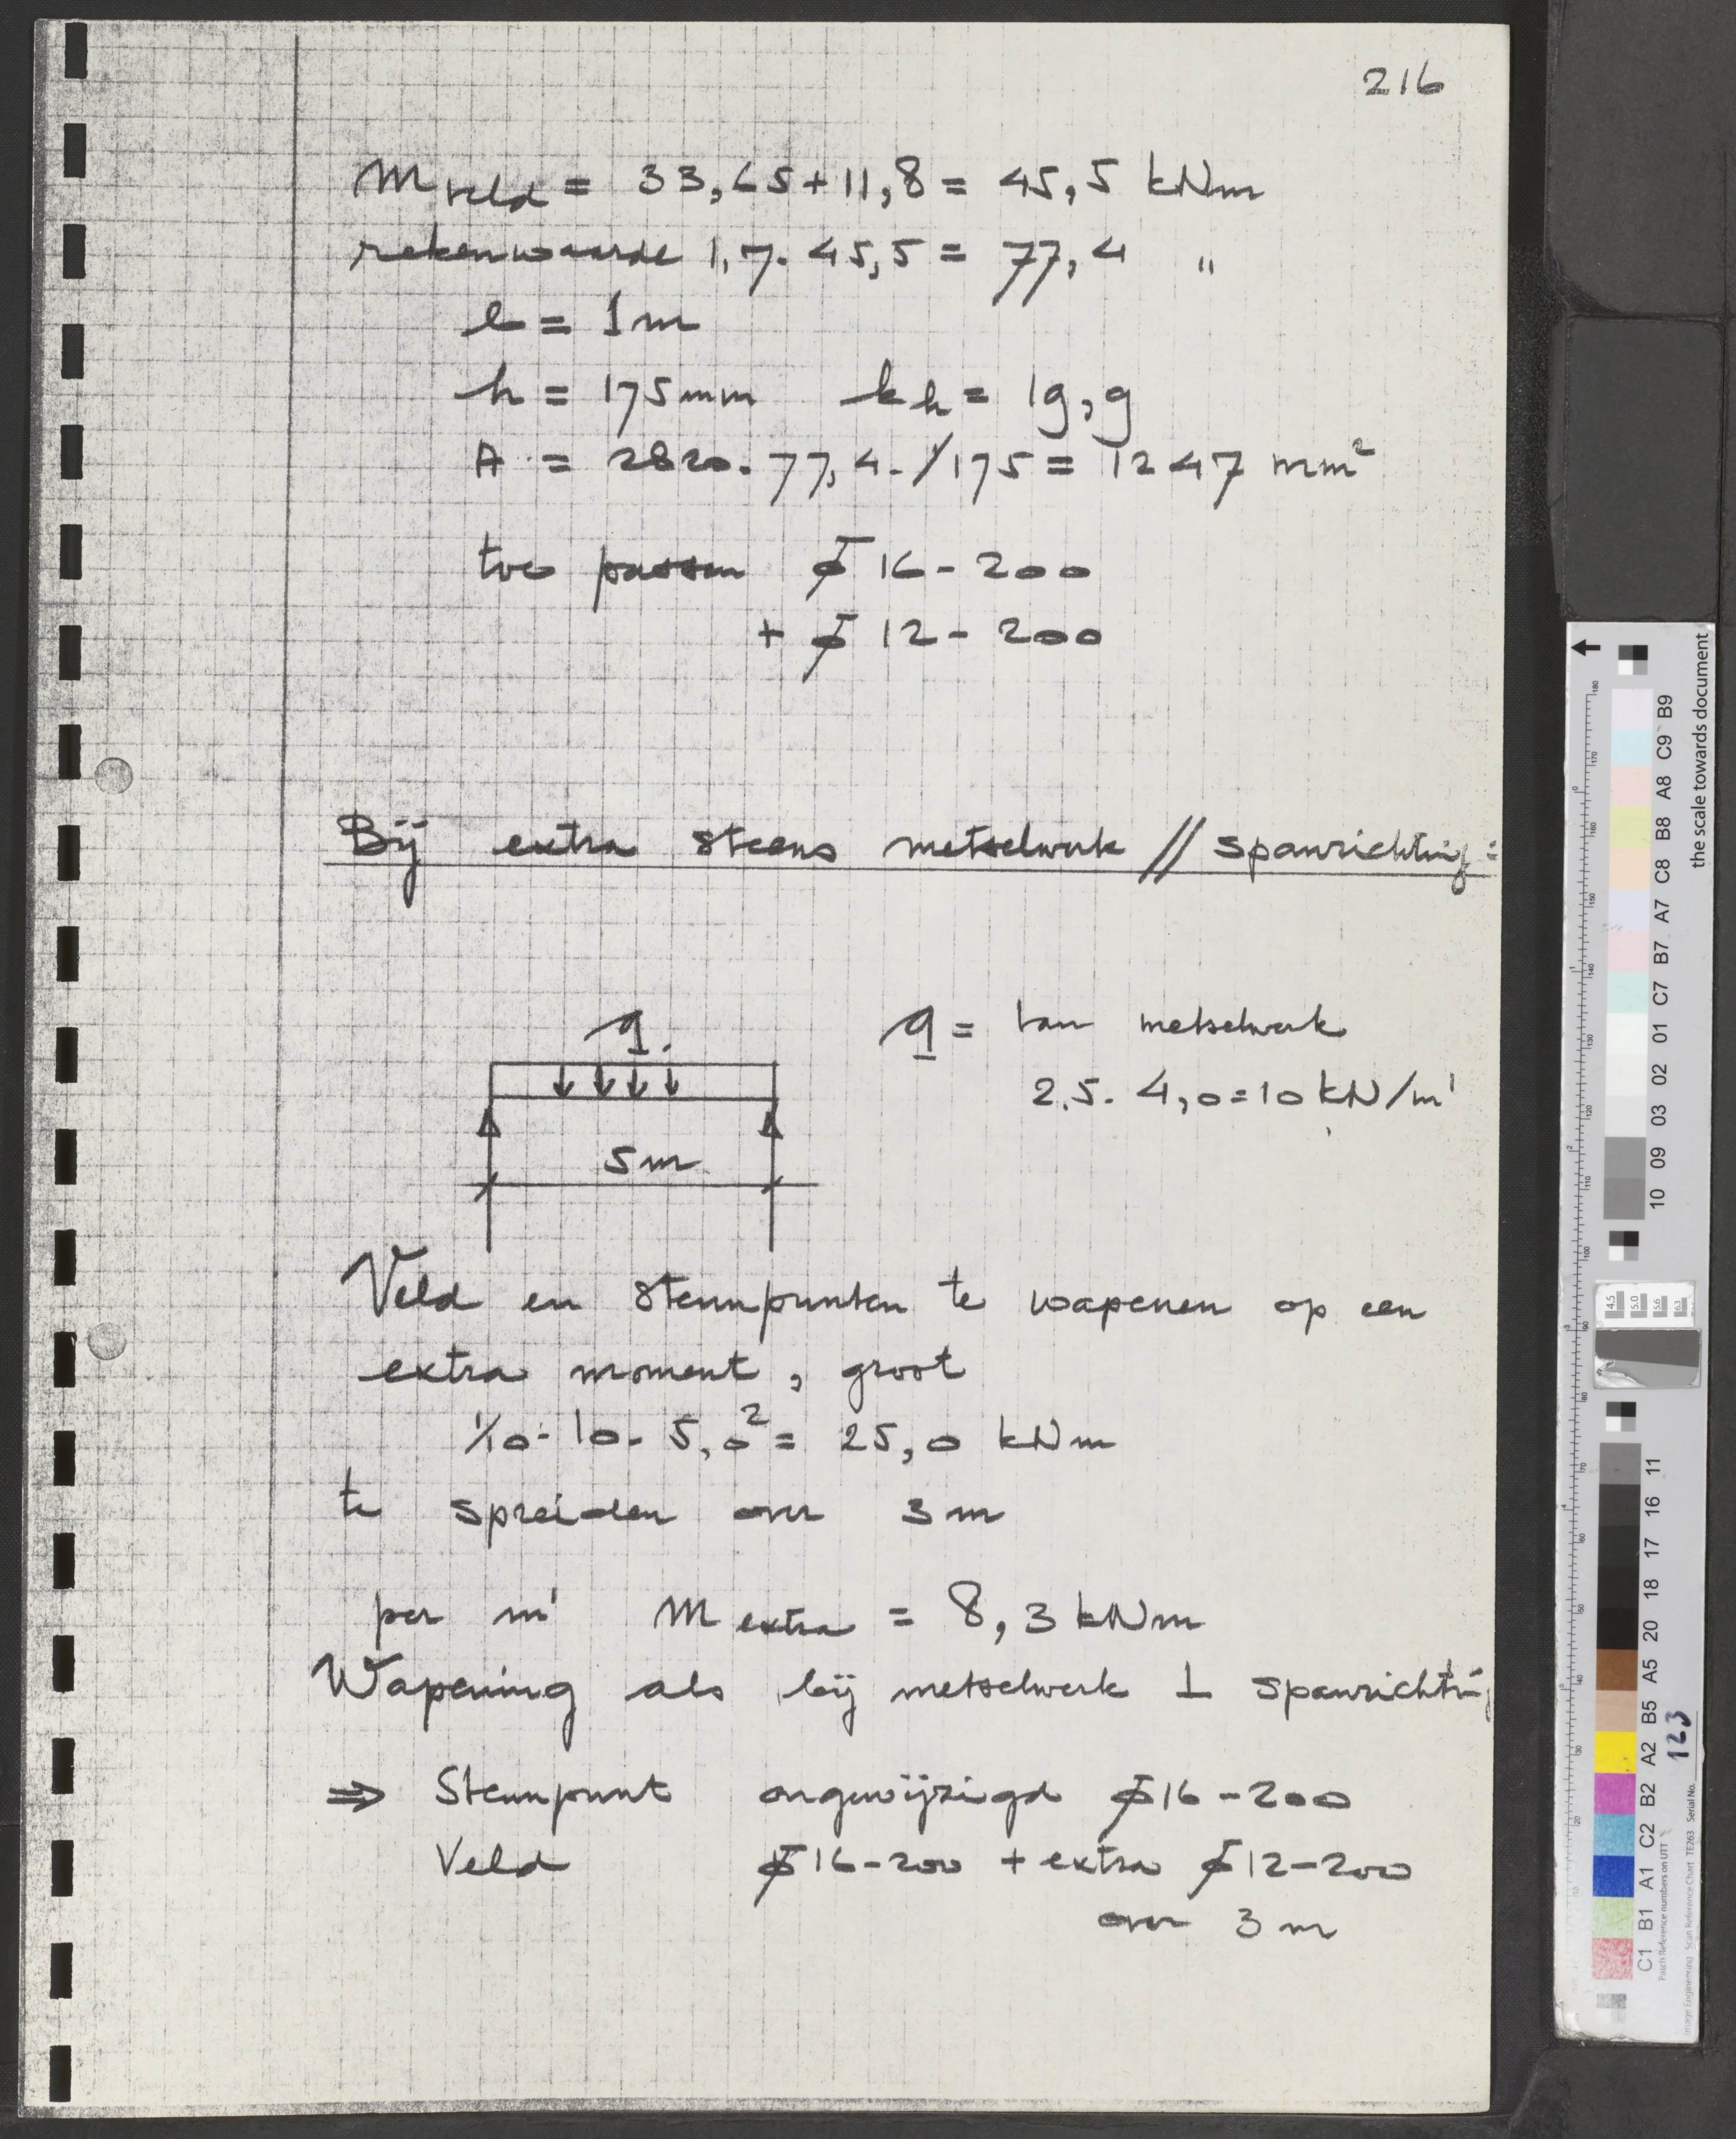 216
M veld = 33,65 + 11,8 = 45,5 kNm
rekenwaarde 1,7 . 45,5 = 77,4 "
b = 1 m
h = 175 mm kh = 19,9
A = 2820 . 77,4 . /175 = 1247 mm²
toe passen ϕ 16 - 200
+ ϕ 12 - 200
Bij extra steens metselwerk // spanrichting :
q
q = van metselwerk
2.5 . 4,0 = 10 kN/m'
5 m
Veld en steunpunten te wapenen op een
extra moment , groot
1/10 . 10 . 5,0² = 25,0 kNm
te spreiden over 3 m
per m' M extra = 8,3 kNm
Wapening als bij metselwerk ⊥ spanrichting
⇒ Steunpunt ongewijzigd ϕ16 - 200
Veld ϕ16 - 200 + extra ϕ12 - 200
over 3 m
the scale towards document
C1 B1 A1 C2 B2 A2 B5 A5 20 18 17 16 11
10 09 03 02 01 C7 B7 A7 C8 B8 A8 C9 B9
4.5 5.0 5.6 6.3
Patch Reference numbers on UTT
Image Engineering Scan Reference Chart TE263 Serial No. 123